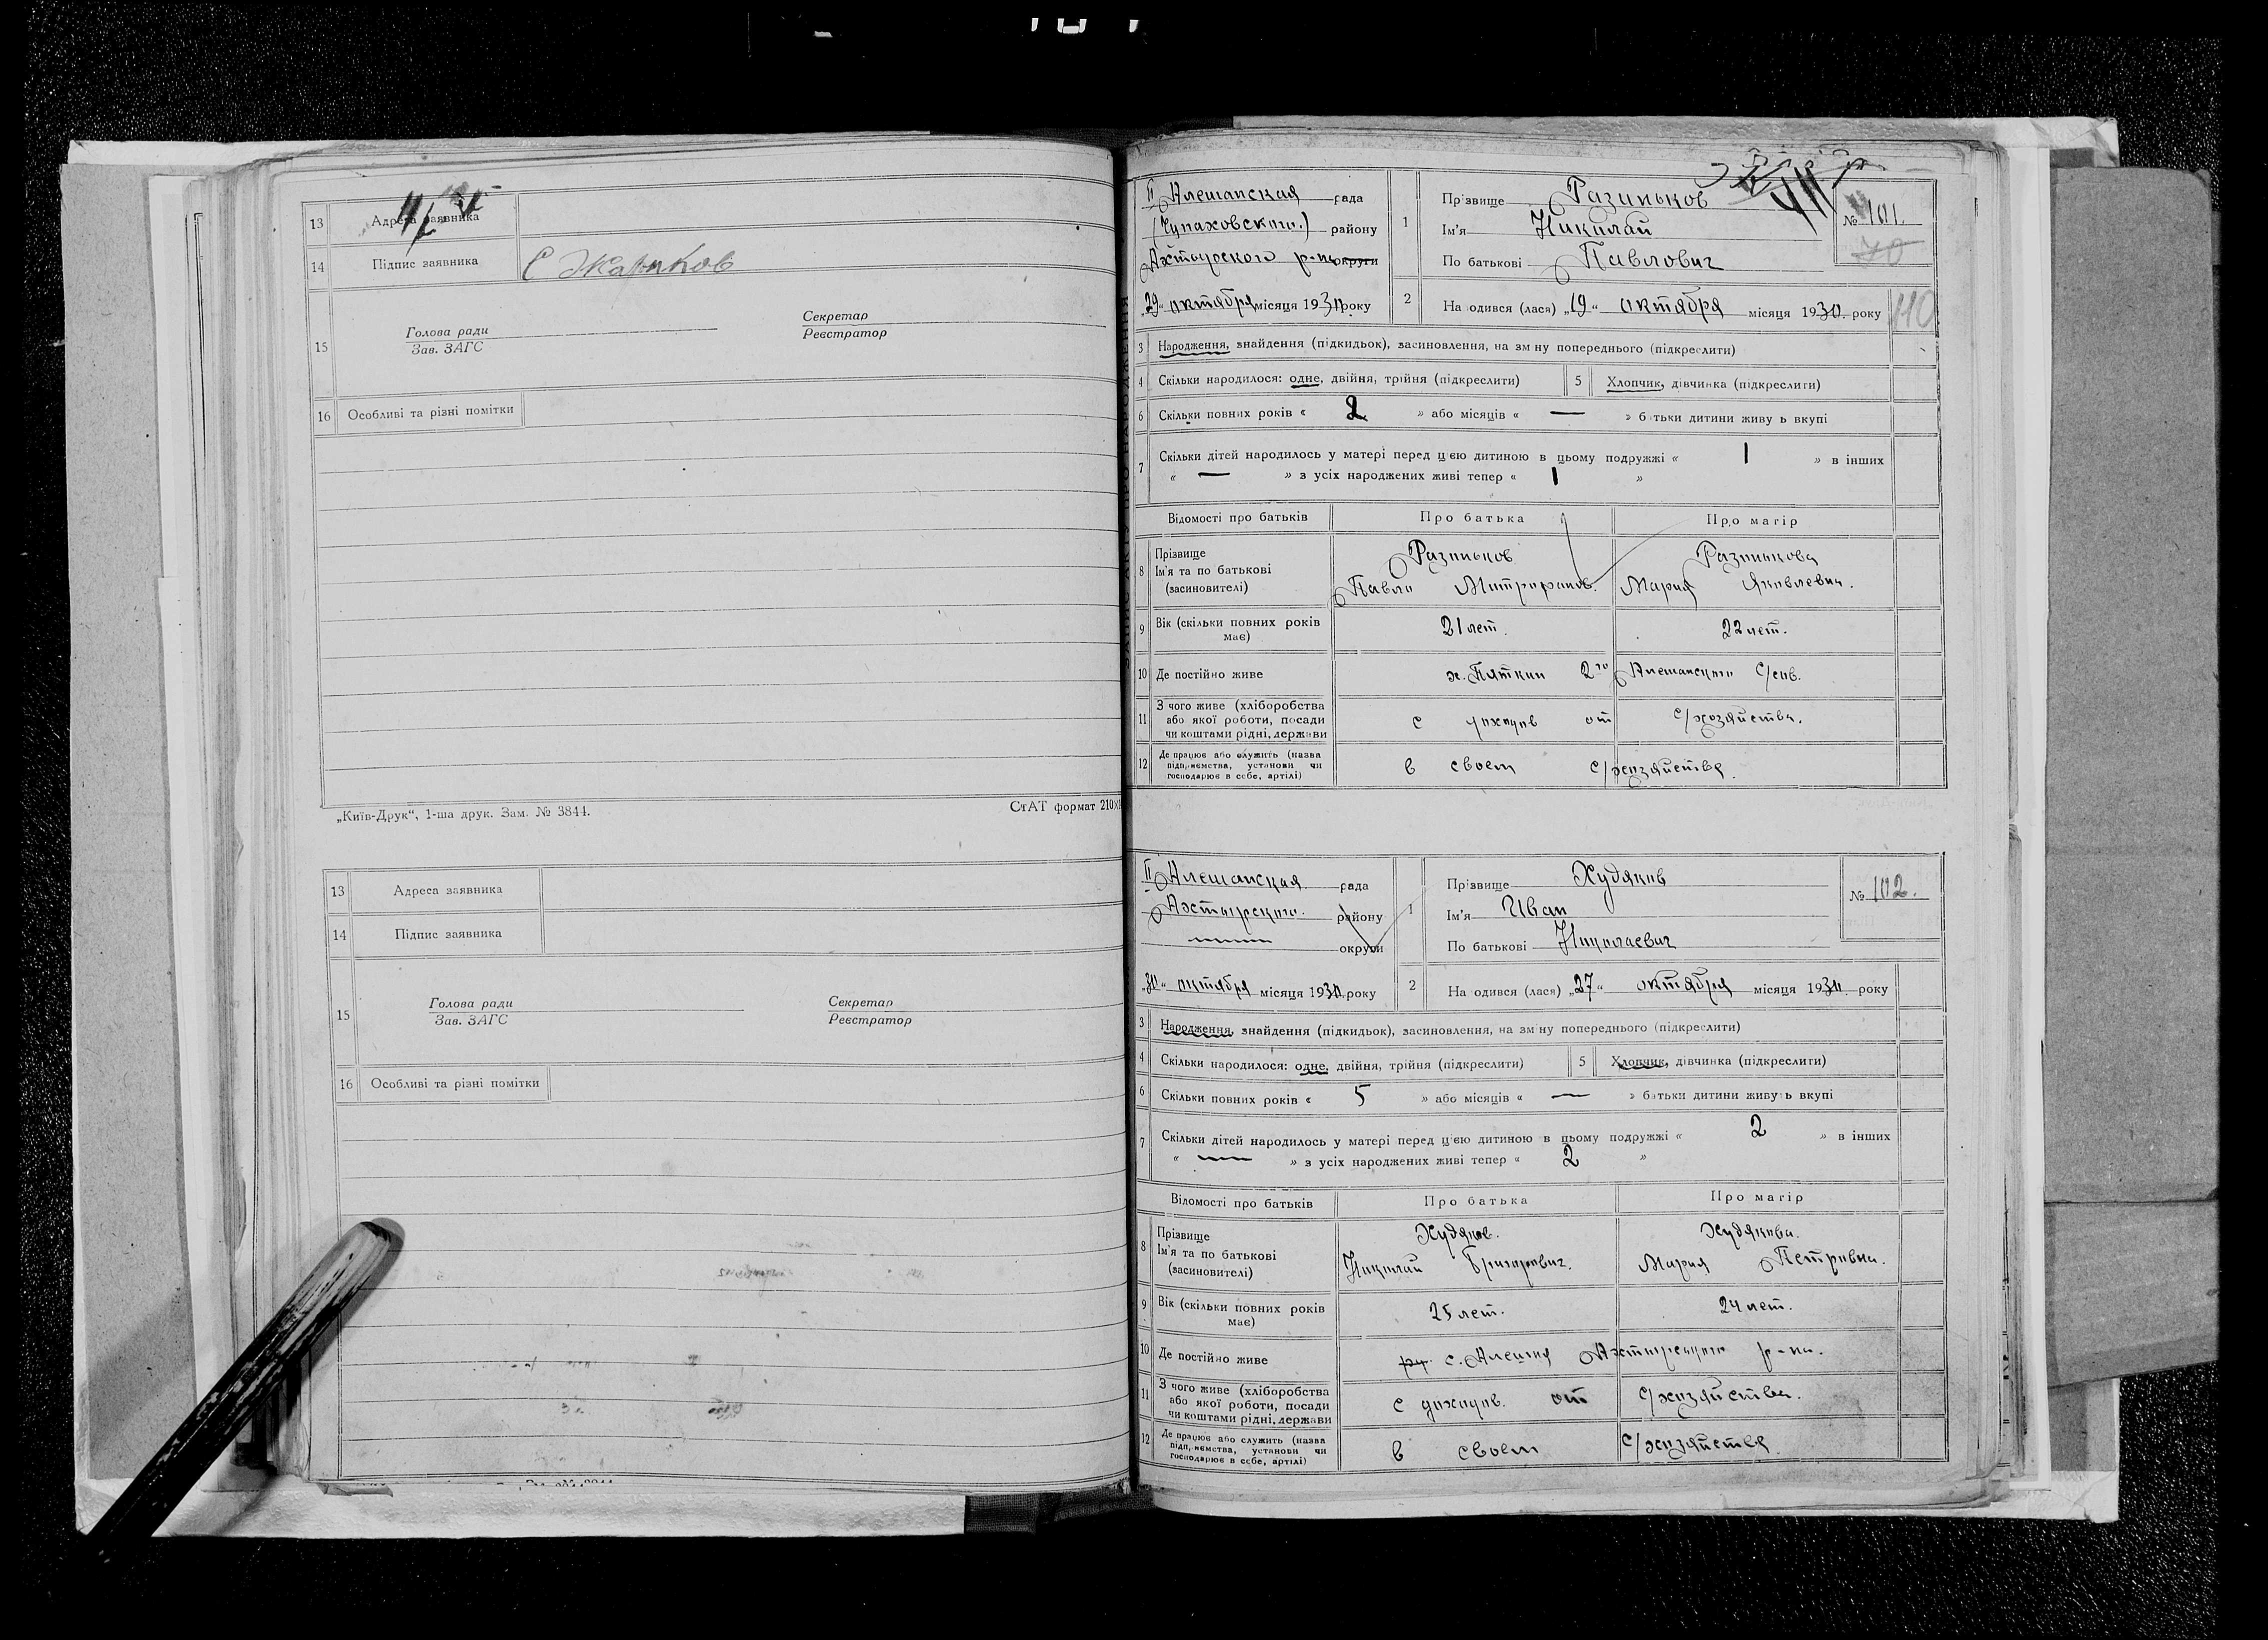 13 Адреса заявника
14 Підпис заявника С Жариков
15 Голова ради
Зав. ЗАГС
Секретар
Реєстратор
16 Особливі та різні помітки
„Київ-Друк“, 1-ша друк. Зам. № 3844.
СтАТ формат 210
13 Адреса заявника
14 Підпис заявника
15 Голова ради
Зав. ЗАГС
Секретар
Реєстратор
16 Особливі та різні помітки
II Алешанская рада
(Чупаховского.) району
Ахтырского р-на округи
„29“ октября місяця 1930 року
1 Прізвище Разиньков
Ім'я Николай
По батькові Павлович
№ 101
70
2 На одився (лася) „19“ октября місяця 1930. року
110
3 Народження, знайдення (підкидьок), засиновлення, на зм ну попереднього (підкреслити)
4 Скільки народилося: одне, двійня, трійня (підкреслити) 5 Хлопчик, дівчинка (підкреслити)
6 Скільки повних років « 2 » або місяців « — » батьки дитини живу ь вкупі
7 Скільки дітей народилось у матері перед цією дитиною в цьому подружжі « 1 » в інших
« — » з усіх народжених живі тепер « 1 »
Відомості про батьків Про батька Про матір
8 Прізвище
Ім'я та по батькові
(засиновителі)
Разиньков
Павло Митрофанов.
Разинькова
Мария Яковлевна.
9 Вік (скільки повних років має) 21 лет. 22 лет.
10 Де постійно живе х. Пяткин 2го Алешанского С/сов.
11 З чого живе (хліборобства
або якої роботи, посади
чи коштами рідні, держави
с доходов от с/хозяйства.
12 Де працює або служить (назва
підприємства, установи чи
господарює в себе, артілі)
в своем с/хозяйстве.
II Алешанская рада
Ахтырского. району
— округи
„30“ октября місяця 1930. року
1 Прізвище Худяков
Ім'я Иван
По батькові Николаевич
№ 102.
2 На одився (лася) „27“ октября місяця 1930. року
3 Народження, знайдення (підкидьок), засиновлення, на зм ну попереднього (підкреслити)
4 Скільки народилося: одне, двійня, трійня (підкреслити) 5 Хлопчик, дівчинка (підкреслити)
6 Скільки повних років « 5 » або місяців « — » батьки дитини живуть вкупі
7 Скільки дітей народилось у матері перед цією дитиною в цьому подружжі « 2 » в інших
« — » з усіх народжених живі тепер « 2 »
Відомості про батьків Про батька Про матір
8 Прізвище
Ім'я та по батькові
(засиновителі)
Худяков.
Николай Григорович.
Худякова.
Мария Петровна.
9 Вік (скільки повних років має) 25 лет. 24 лет.
10 Де постійно живе с. Алешня Ахтырского р-на.
11 З чого живе (хліборобства
або якої роботи, посади
чи коштами рідні, держави
с доходов. от с/хозяйства.
12 Де працює або служить (назва
підприємства, установи чи
господарює в себе, артілі)
в своем с/хозяйстве.